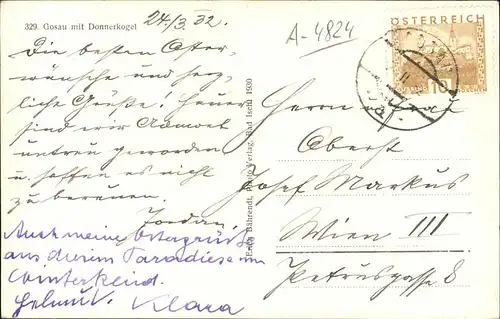 329. Gosau mit Donnerkogel
24./3. 32.
A-4824
ÖSTERREICH
10
Die besten Oster-
wünsche und herz-
liche Grüße! Heuer
sind wir Admont
untreu geworden
u. hoffen es nicht
zu bereuen.
Jordan
Auch meine Ostergrüße
aus diesem Paradiese im
Winterkleid.
Helmut. Klara
Erich Bährendt, Photo-Verlag, Bad Ischl 1930
Herrn u. Frau
Oberst
Josef Markus
Wien III
Petrusgasse 8